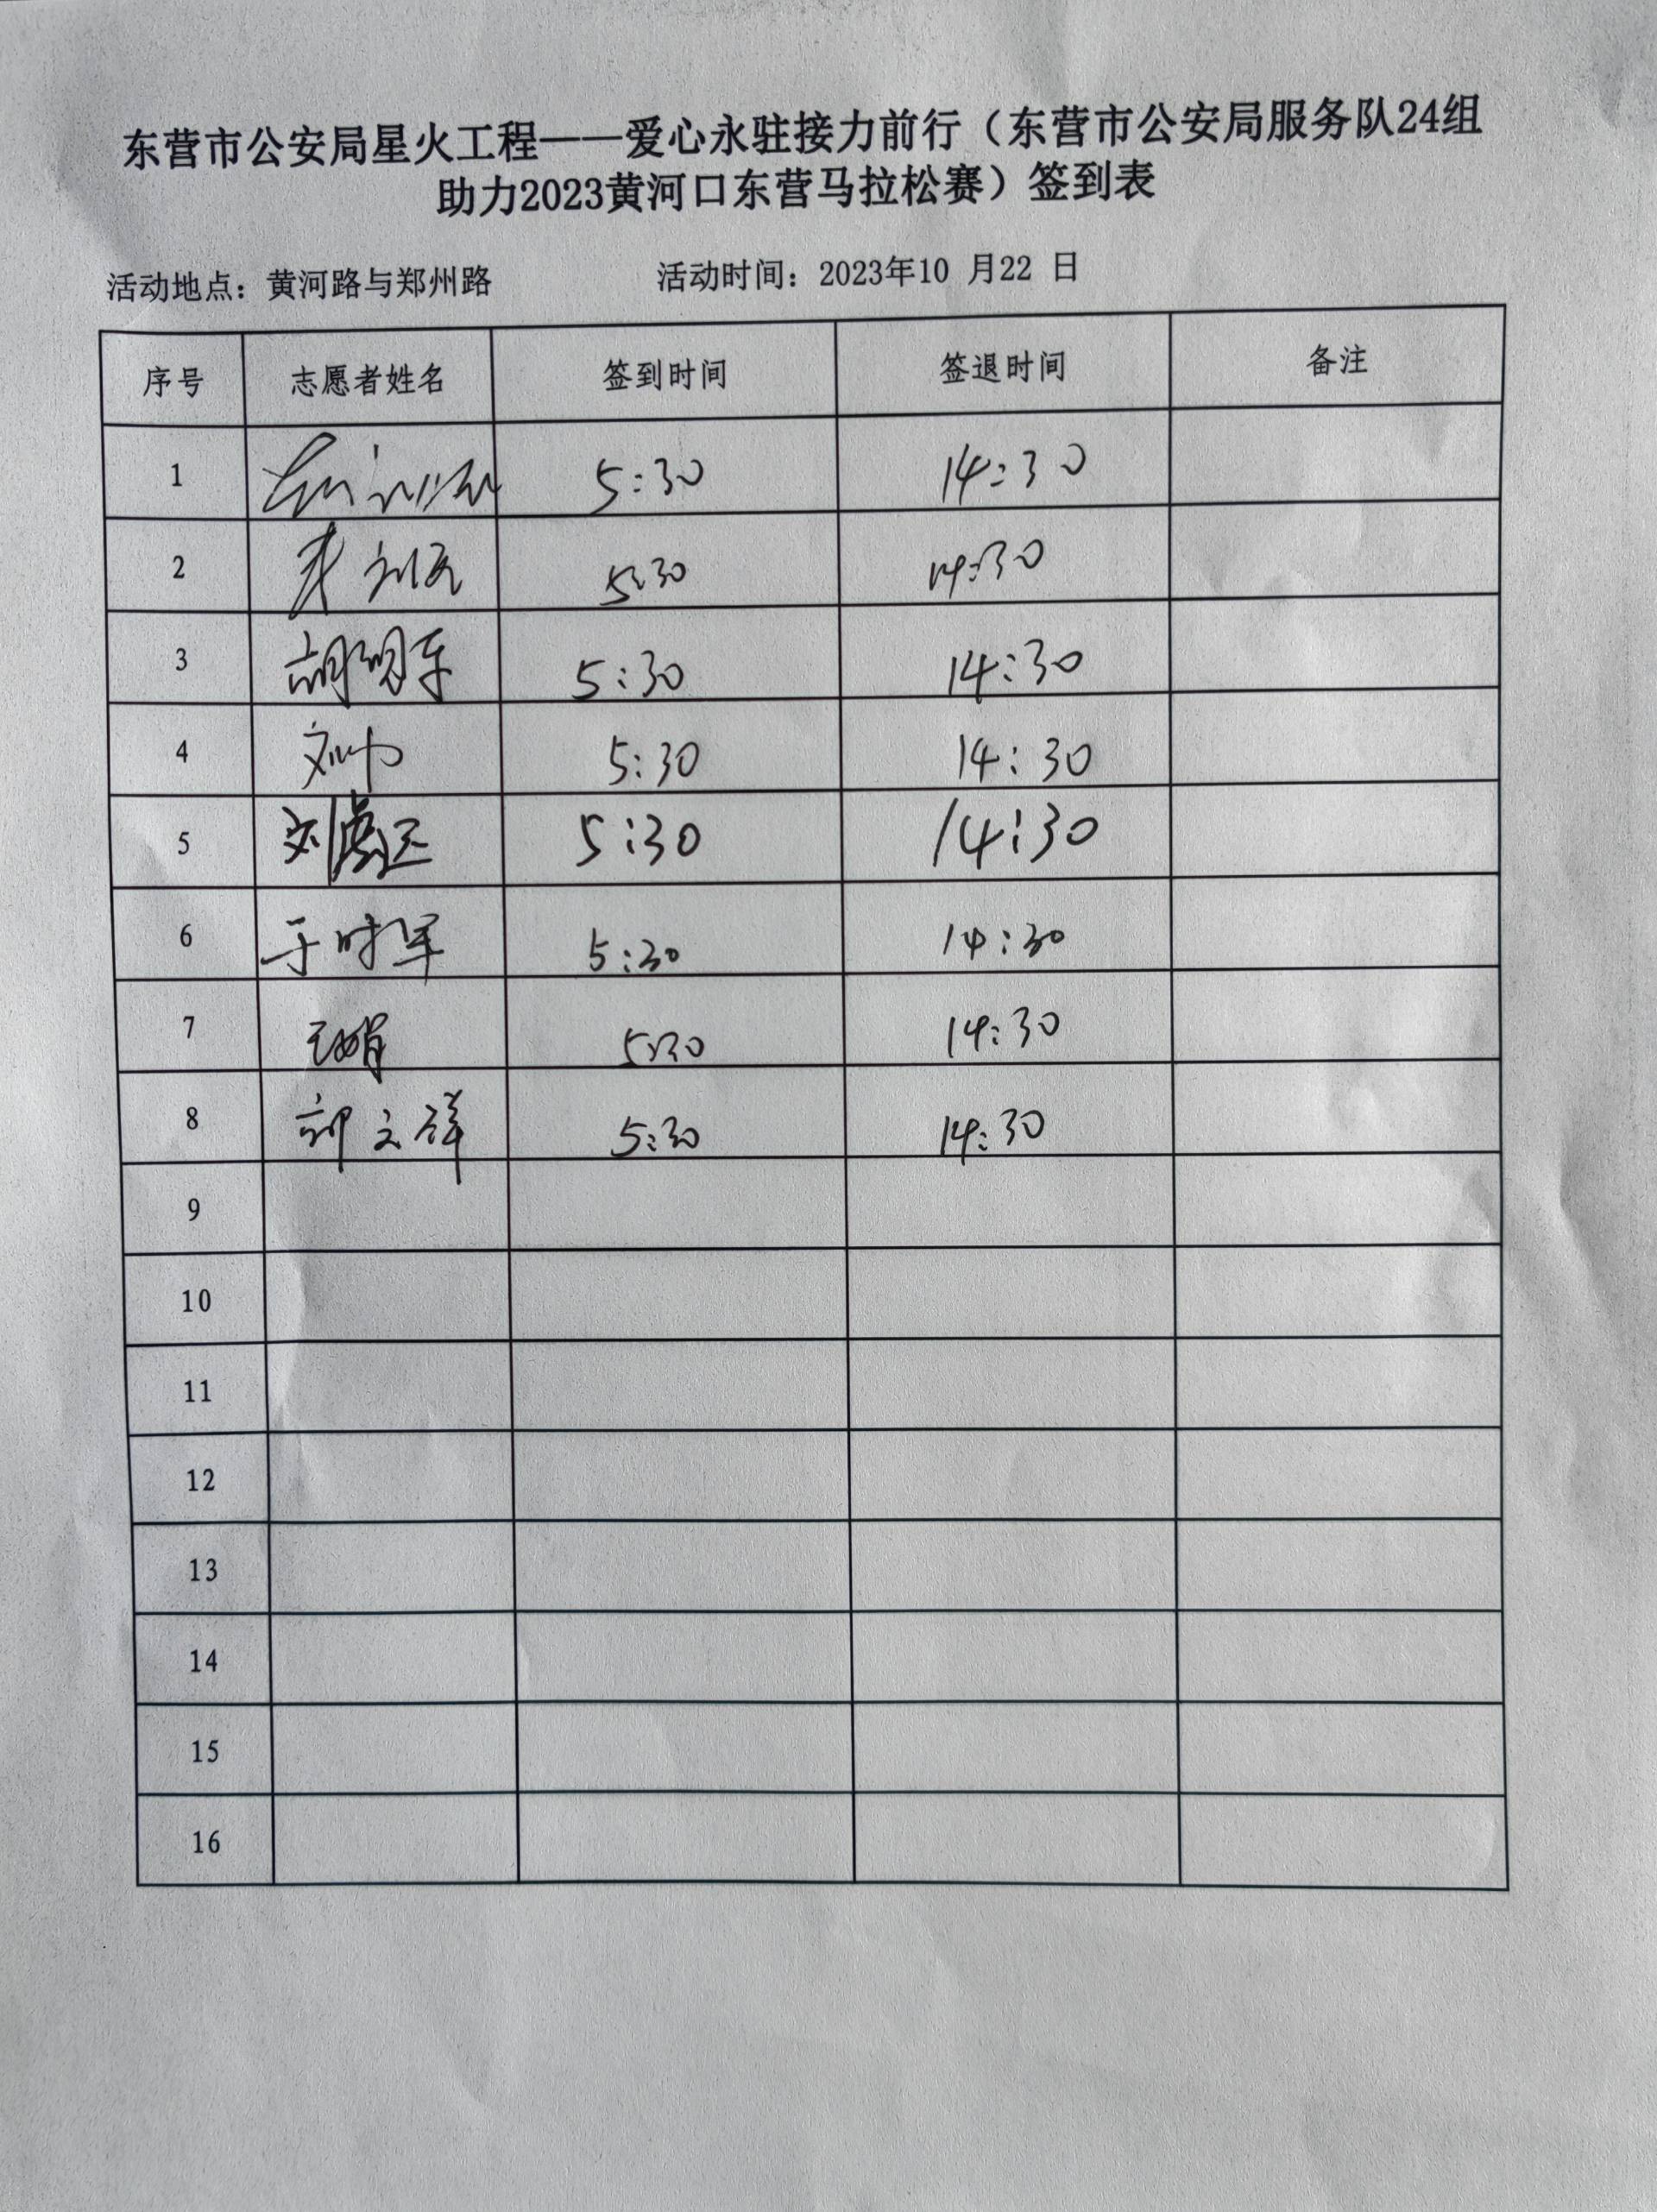 东营市公安局星火工程——爱心永驻接力前行（东营市公安局服务队24组
助力2023黄河口东营马拉松赛）签到表
活动地点：黄河路与郑州路 活动时间：2023年10 月22 日
序号 志愿者姓名 签到时间 签退时间 备注
1 5:30 14:30
2 5:30 14:30
3 胡明军 5:30 14:30
4 刘 5:30 14:30
5 刘 5:30 14:30
6 于时军 5:30 14:30
7 5:30 14:30
8 郭立祥 5:30 14:30
9
10
11
12
13
14
15
16